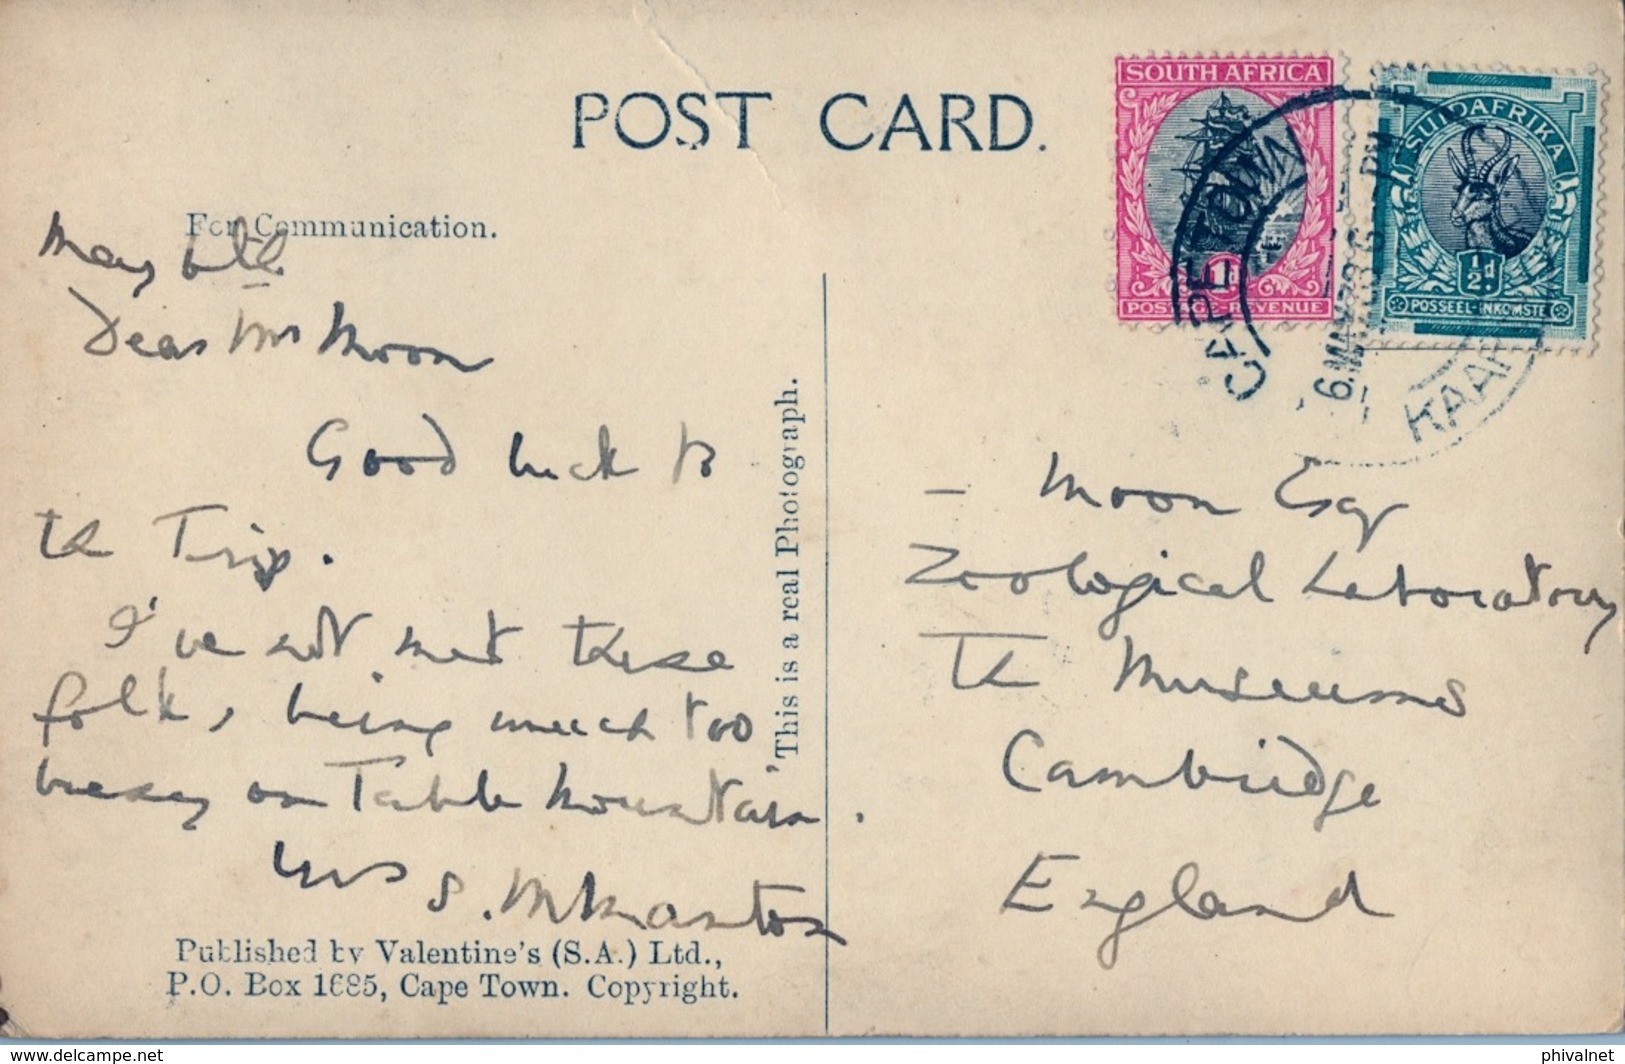 POST CARD.
For Communication.
SOUTH AFRICA
1d
POSTAGE-REVENUE
SUIDAFRIKA
½d
POSSEEL-INKOMSTE
CAPE TOWN
6. MAY 36 PM
KAAP
May 6th
Dear Mr Moon
Good luck to
the Trip.
I've not met these
folk, being much too
on Table Mountain.
S.
This is a real Photograph.
— Moon Esq
Zoological Laboratory
The Museums
Cambridge
England
Published by Valentine's (S.A.) Ltd.,
P.O. Box 1685, Cape Town. Copyright.
Delcampe.net
phivalnet